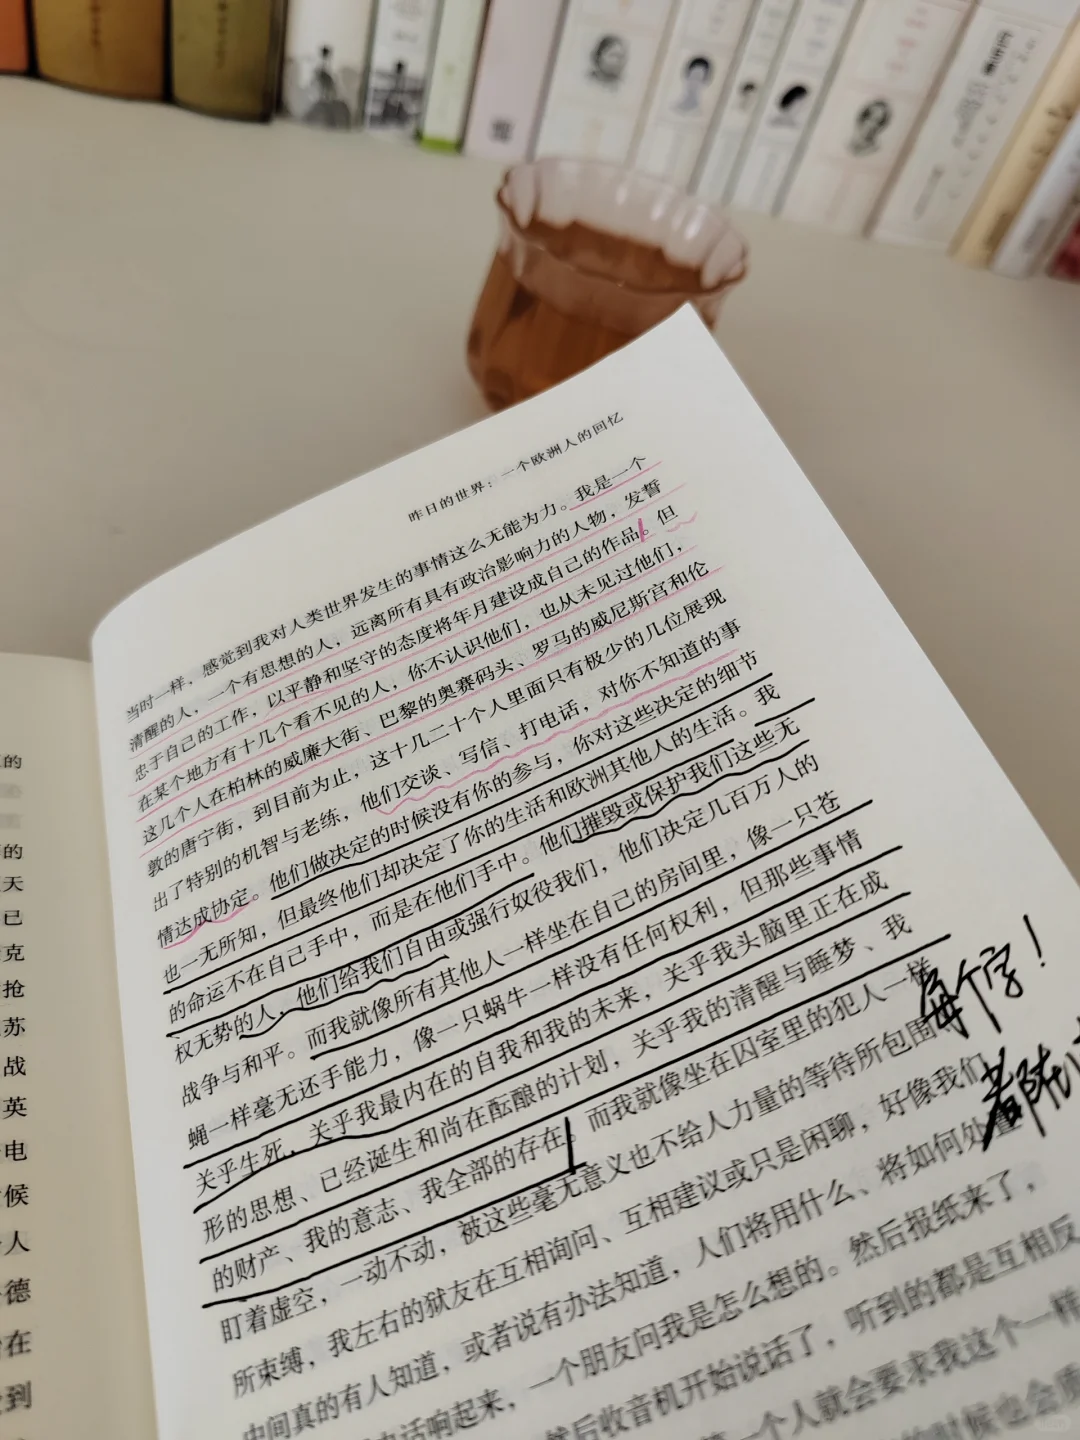 昨日的世界：一个欧洲人的回忆
当时一样，感觉到我对人类世界发生的事情这么无能为力。我是一个
清醒的人，一个有思想的人，远离所有具有政治影响力的人物，发誓
忠于自己的工作，以平静和坚守的态度将年月建设成自己的作品。但
在某个地方有十几个看不见的人，你不认识他们，也从未见过他们，
这几个人在柏林的威廉大街、巴黎的奥赛码头、罗马的威尼斯宫和伦
敦的唐宁街，到目前为止，这十几二十个人里面只有极少的几位展现
出了特别的机智与老练，他们交谈、写信、打电话，对你不知道的事
情达成协定。他们做决定的时候没有你的参与，你对这些决定的细节
也一无所知，但最终他们却决定了你的生活和欧洲其他人的生活。我
的命运不在自己手中，而是在他们手中。他们摧毁或保护我们这些无
权无势的人，他们给我们自由或强行奴役我们，他们决定几百万人的
战争与和平。而我就像所有其他人一样坐在自己的房间里，像一只苍
蝇一样毫无还手能力，像一只蜗牛一样没有任何权利，但那些事情
关乎生死，关乎我最内在的自我和我的未来，关乎我头脑里正在成
形的思想、已经诞生和尚在酝酿的计划，关乎我的清醒与睡梦、我
的财产、我的意志、我全部的存在。而我就像坐在囚室里的犯人一样
盯着虚空，一动不动，被这些毫无意义也不给人力量的等待所包围
所束缚，我左右的狱友在互相询问、互相建议或只是闲聊，好像我们
中间真的有人知道，或者说有办法知道，人们将用什么、将如何处置
电话响起来，一个朋友问我是怎么想的。然后报纸来了，
然后收音机开始说话了，听到的都是互相反
一个人就会要求我这个一样
的时候也会质
每个字！
的
的
天
已
克
抢
苏
战
英
电
候
人
德
在
到